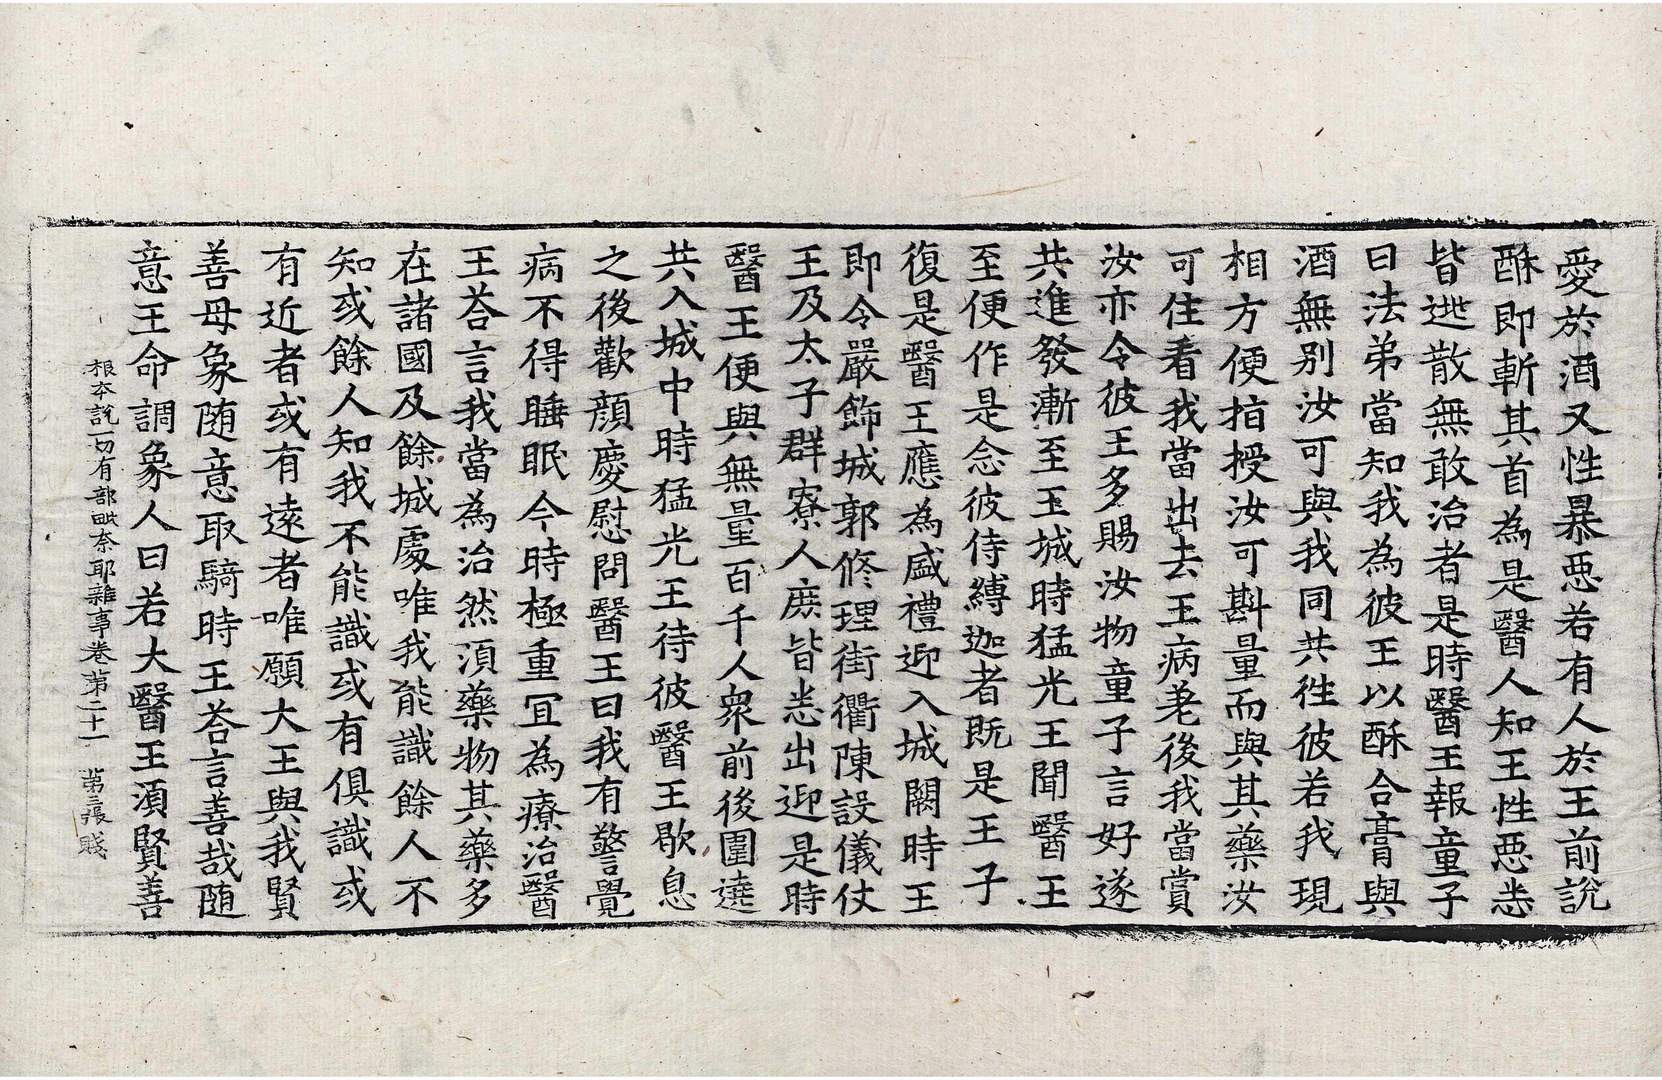 愛於酒又性暴惡若有人於王前說
酥即斬其首為是醫人知王性惡悉
皆逃散無敢治者是時醫王報童子
曰法弟當知我為彼王以酥合膏與
酒無別汝可與我同共往彼若我現
相方便指授汝可斟量而與其藥汝
可住看我當出去王病差後我當賞
汝亦令彼王多賜汝物童子言好遂
共進發漸至王城時猛光王聞醫王
至便作是念彼侍縛迦者既是王子
復是醫王應為盛禮迎入城闕時王
即令嚴飾城郭修理街衢陳設儀仗
王及太子群寮人庶皆悉出迎是時
醫王便與無量百千人眾前後圍遶
共入城中時猛光王待彼醫王歇息
之後歡顏慶慰問醫王曰我有警覺
病不得睡眠今時極重冝為療治醫
王荅言我當為治然湏藥物其藥多
在諸國及餘城處唯我能識餘人不
知或餘人知我不能識或有俱識或
有近者或有遠者唯願大王與我賢
善母象隨意取騎時王荅言善哉隨
意王命調象人曰若大醫王湏賢善
根本說一切有部毗奈耶雜事卷第二十一 第三張 賤